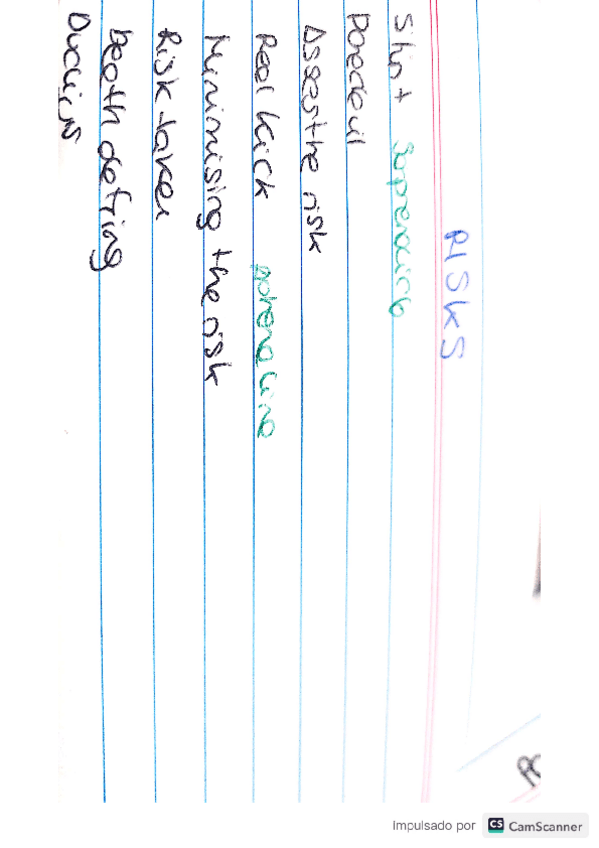 RISKS
Stunt
Daredevil
Asses the risk
Real kick adrenaline
Minimising the risk
Risk-taker
Death defying
Impulsado por CS CamScanner